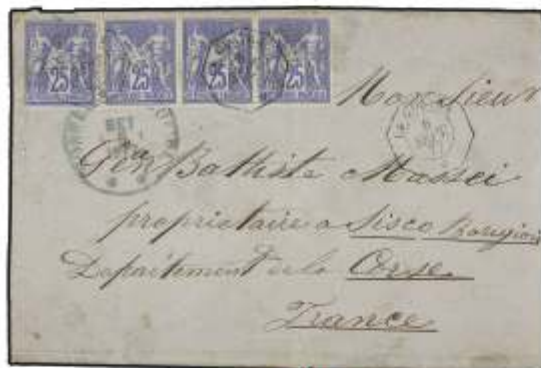 25 25 25 25
Monsieur
Gio Batiste Massei
propriétaire a Sisco
Departement de la Corse
France